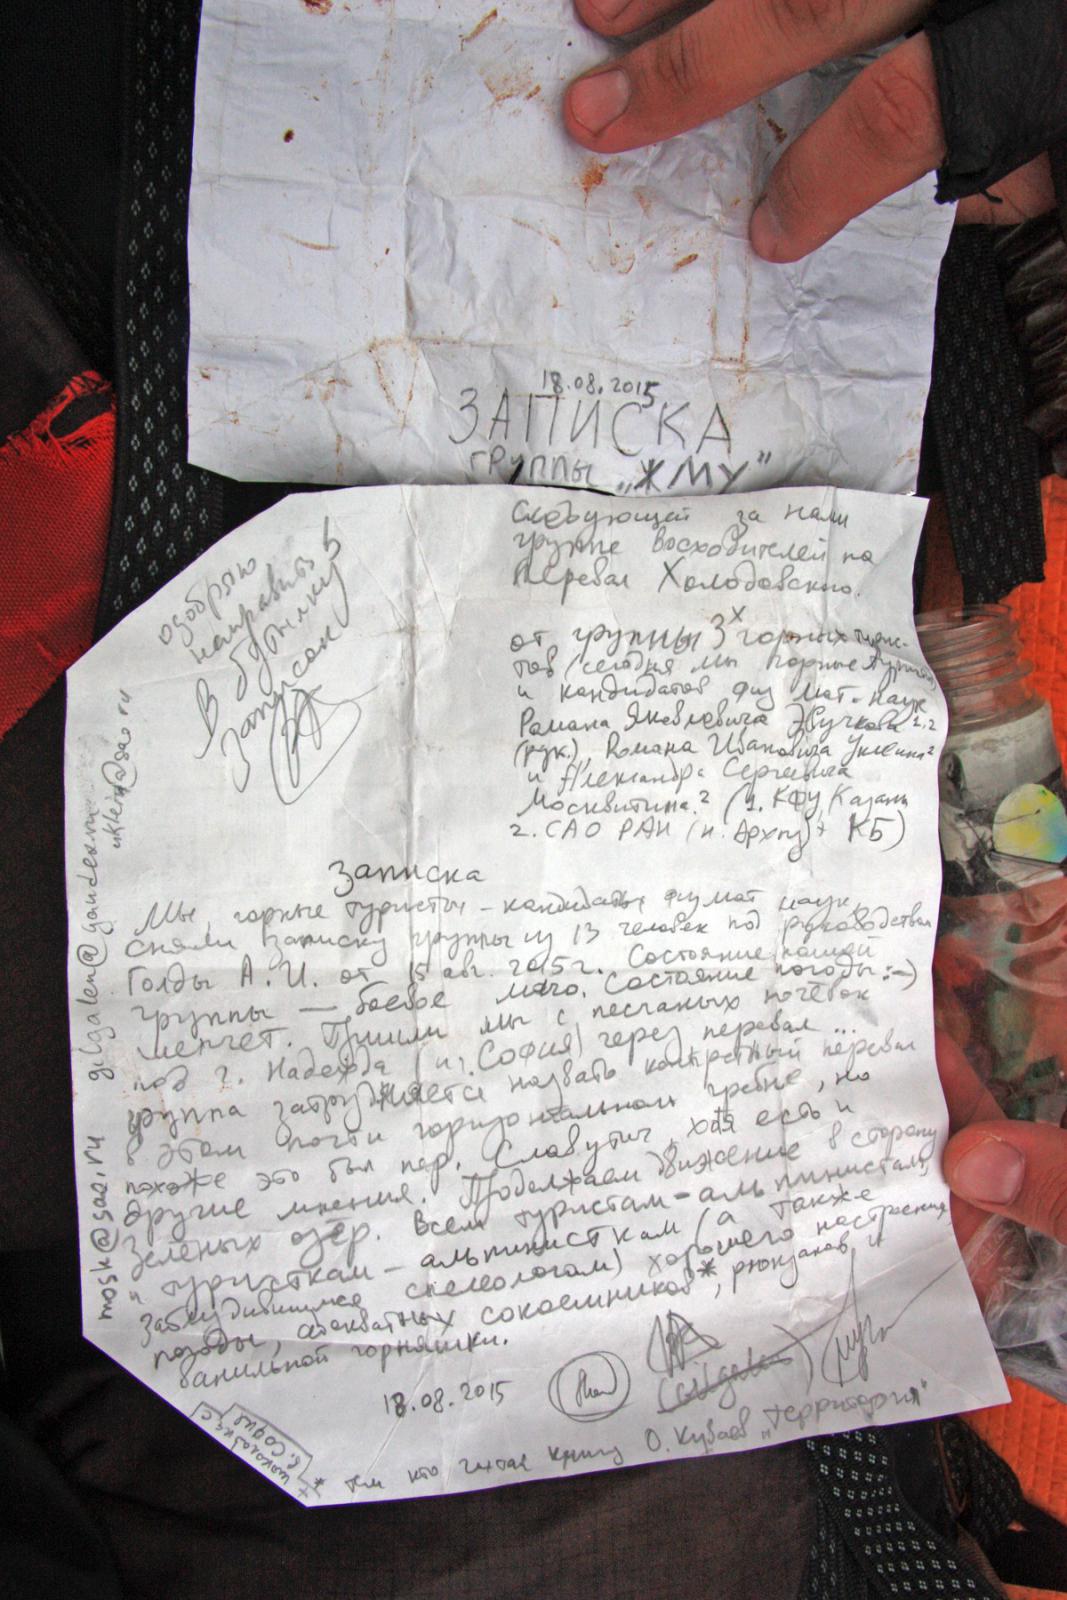 18.08.2015
ЗАПИСКА
ГРУППЫ „ЖМУ"
одобряю
направить в
в бутылку
записок
Следующей за нами
группе восходителей на
перевал Холодовского.
от группы 3х горных турис-
тов (сегодня мы горные туристы)
и кандидатов физ мат. наук
Романа Яковлевича Жучкова 1,2
(рук.), Романа Ивановича Уклеина 2
и Александра Сергеевича
Москвитина. 2 (1. КФУ Казань
2. САО РАН (н. Архыз) + КБ)
Записка
Мы, горные туристы – кандидаты физмат наук,
сняли записку группы из 13 человек под руководством
Голды А. И. от 15 авг. 2015 г. Состояние нашей
группы — боевое мачо. Состояние погоды :-)
шепчет. Пришли мы с песчаных ночёвок
под г. Надежда (и г. София) через перевал ...
группа затрудняется назвать конкретный перевал
в этом почти горизонтальном гребне, но
похоже это был пер. Славутич, хотя есть и
другие мнения. Продолжаем движение в сторону
Зеленых озёр. Всем туристам-альпинистам,
и туристкам-альпинисткам (а также
заблудившимся спелеологам) хорошего настроения,
погоды, адекватных сокоешников*, рюкзаков и
ванильной горняшки.
18.08.2015
* тем кто читал книгу О. Куваев „Территория"
шоколадка с
г. София
mosk@sao.ru gilgalen@yandex.ru
uklein@sao.ru